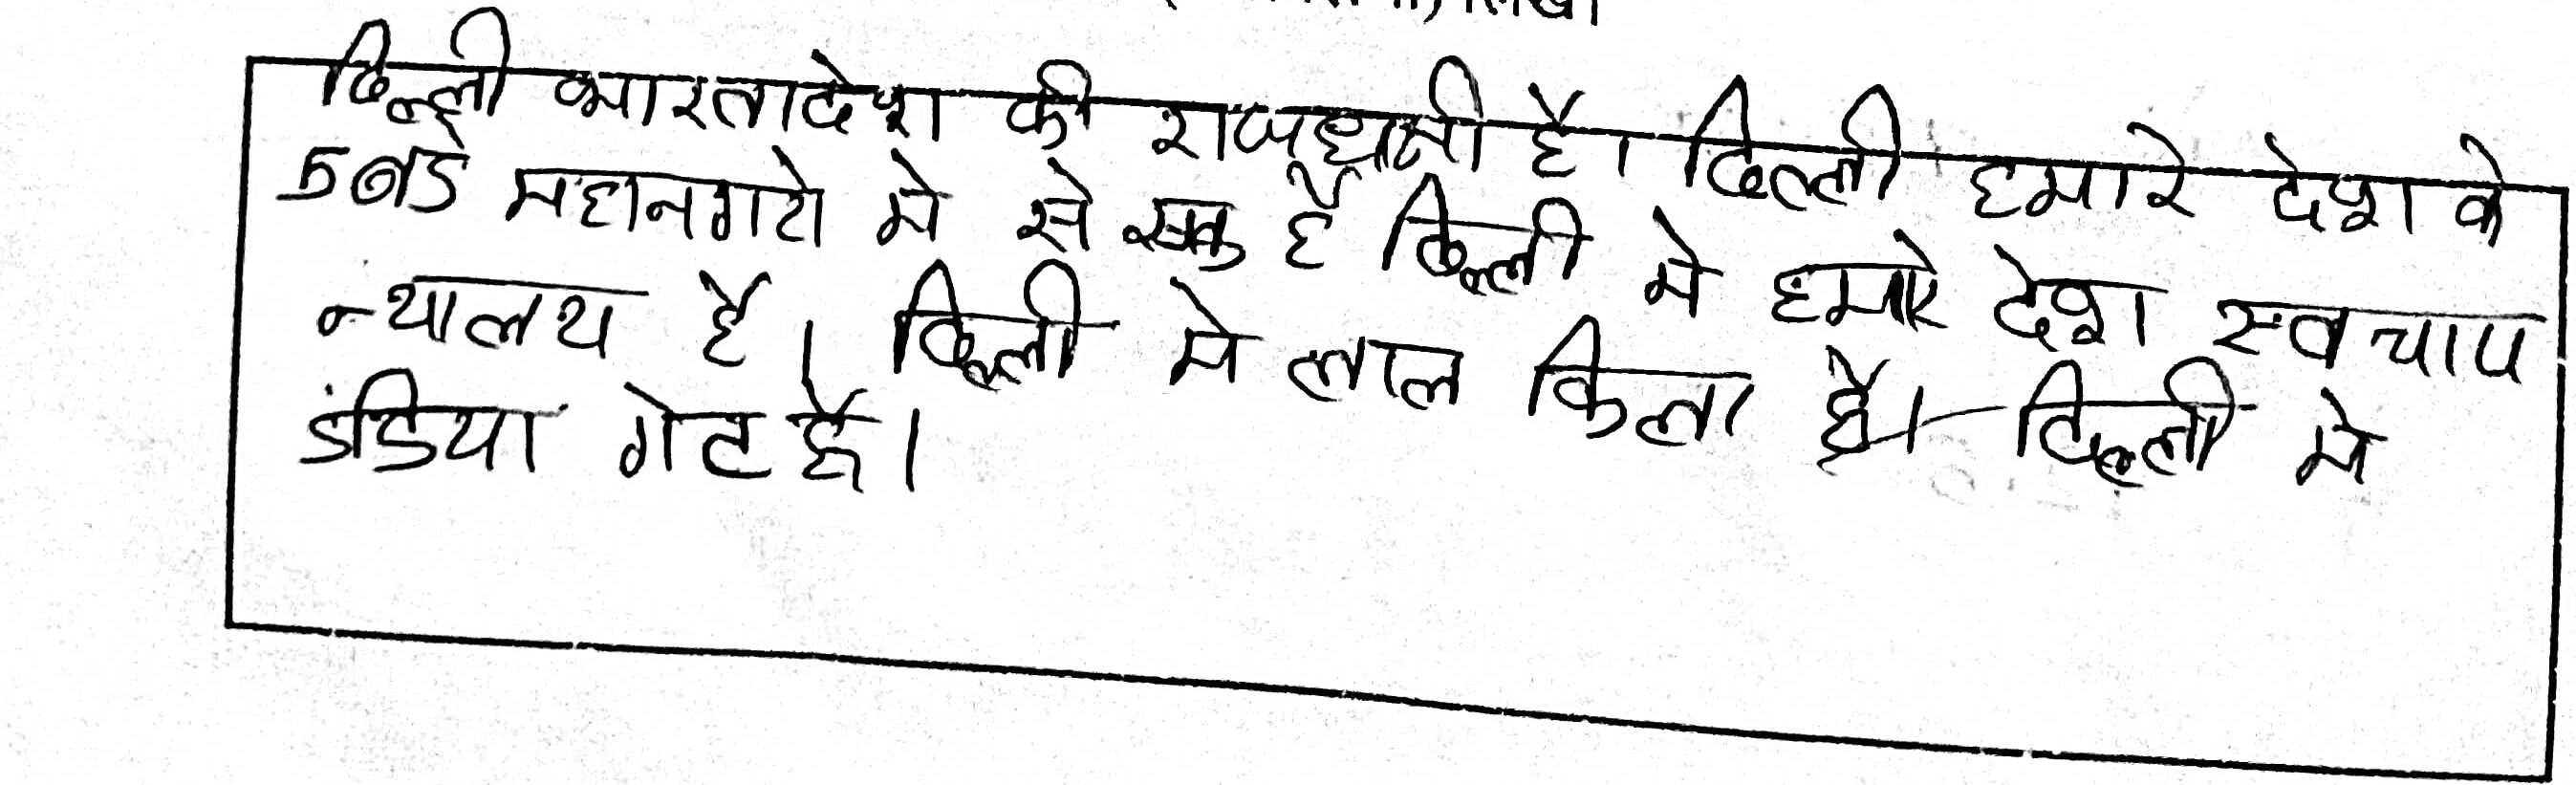 दिल्ली भारतादेश की राजधानी है। दिल्ली हमारे देश के
5 बडे महानगरो मे से एक है दिल्ली मे हमारे देश
न्यालय है। दिल्ली मे लाल किला है। दिल्ली मे
इंडिया गेट है।